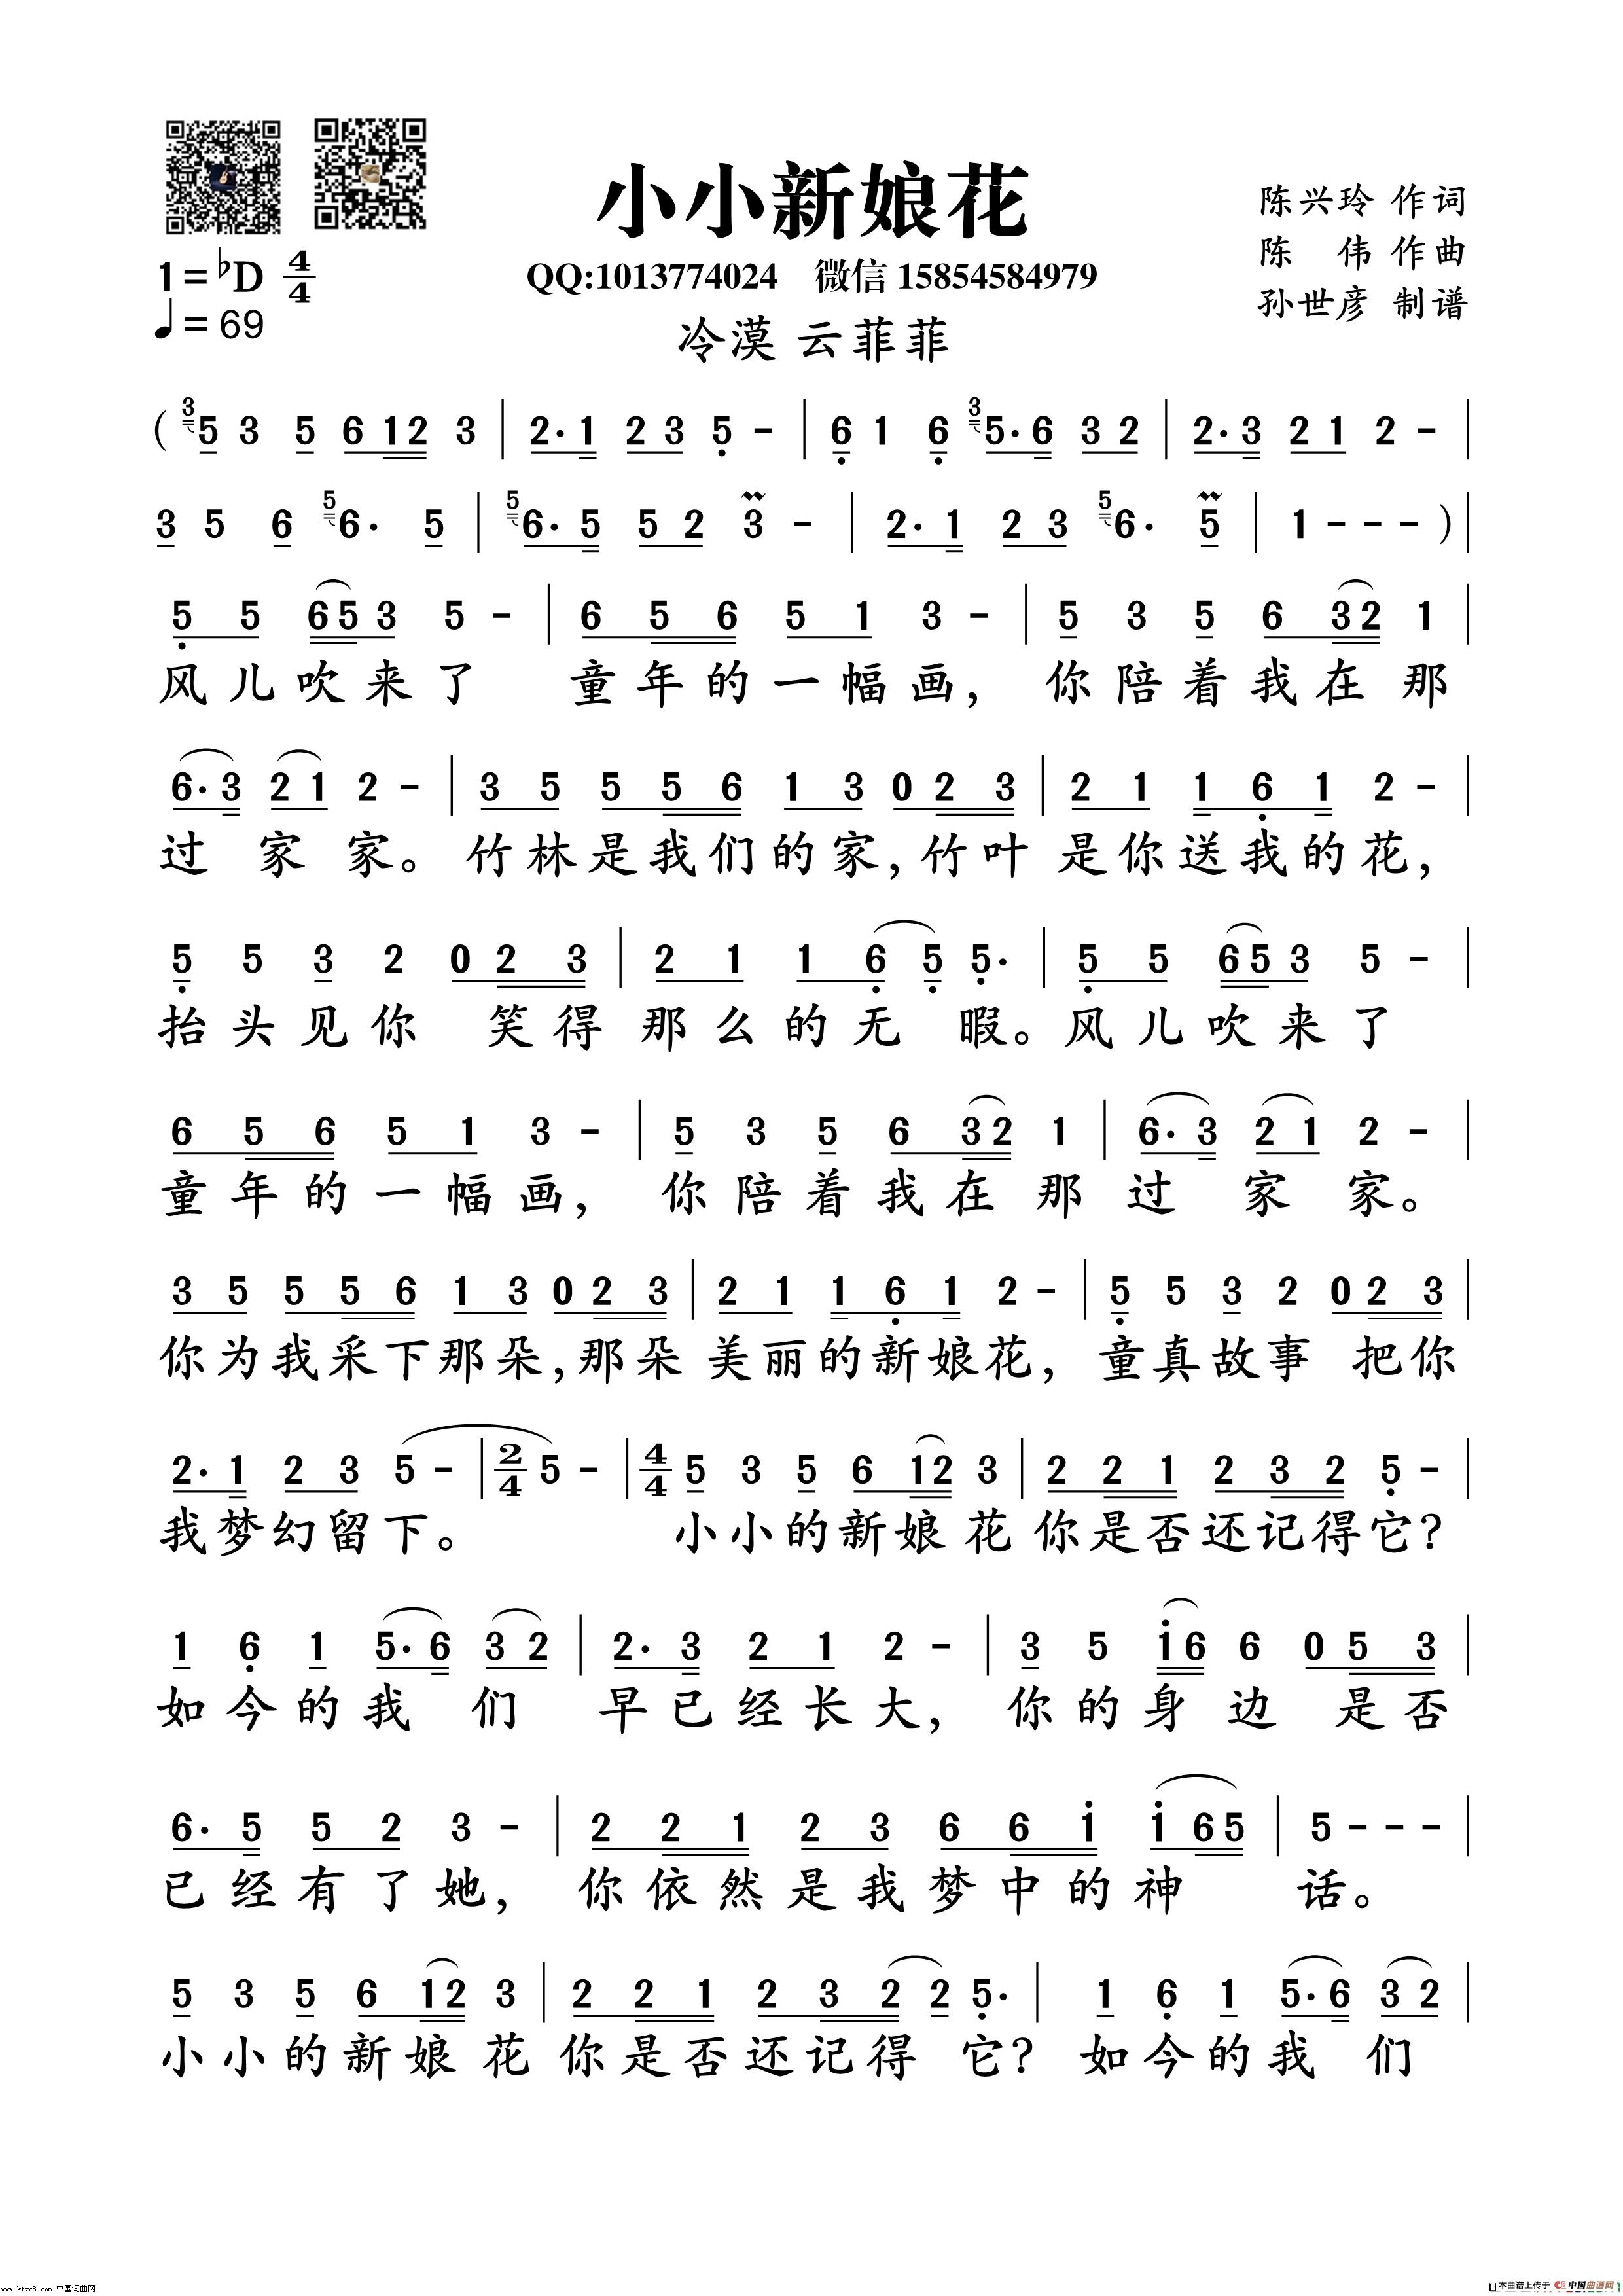 小小新娘花
陈兴玲 作词
1=♭D 4/4
QQ:1013774024 微信 15854584979
陈 伟 作曲
♩=69
孙世彦 制谱
冷漠 云菲菲
( 3 5 3 5 6 1 2 3 | 2· 1 2 3 5 - | 6 1 6 3 5· 6 3 2 | 2· 3 2 1 2 - |
3 5 6 5 6· 5 | 5 6· 5 5 2 3 - | 2· 1 2 3 5 6· 5 | 1 - - - ) |
5 5 6 5 3 5 - | 6 5 6 5 1 3 - | 5 3 5 6 3 2 1 |
风儿吹来了 童年的一幅画, 你陪着我在那
6· 3 2 1 2 - | 3 5 5 5 6 1 3 0 2 3 | 2 1 1 6 1 2 - |
过家家。竹林是我们的家,竹叶是你送我的花,
5 5 3 2 0 2 3 | 2 1 1 6 5 5· | 5 5 6 5 3 5 - |
抬头见你 笑得那么的无暇。风儿吹来了
6 5 6 5 1 3 - | 5 3 5 6 3 2 1 | 6· 3 2 1 2 - |
童年的一幅画, 你陪着我在那过家家。
3 5 5 5 6 1 3 0 2 3 | 2 1 1 6 1 2 - | 5 5 3 2 0 2 3 |
你为我采下那朵,那朵美丽的新娘花,童真故事 把你
2· 1 2 3 5 - | 2/4 5 - | 4/4 5 3 5 6 1 2 3 | 2 2 1 2 3 2 5 - |
我梦幻留下。 小小的新娘花你是否还记得它?
1 6 1 5· 6 3 2 | 2· 3 2 1 2 - | 3 5 i 6 6 0 5 3 |
如今的我们 早已经长大, 你的身边 是否
6· 5 5 2 3 - | 2 2 1 2 3 6 6 i i 6 5 | 5 - - - |
已经有了她, 你依然是我梦中的神 话。
5 3 5 6 1 2 3 | 2 2 1 2 3 2 2 5· | 1 6 1 5· 6 3 2 |
小小的新娘花你是否还记得 它? 如今的我们
www.ktvc8.com 中国词曲网
本曲谱上传于 中国曲谱网